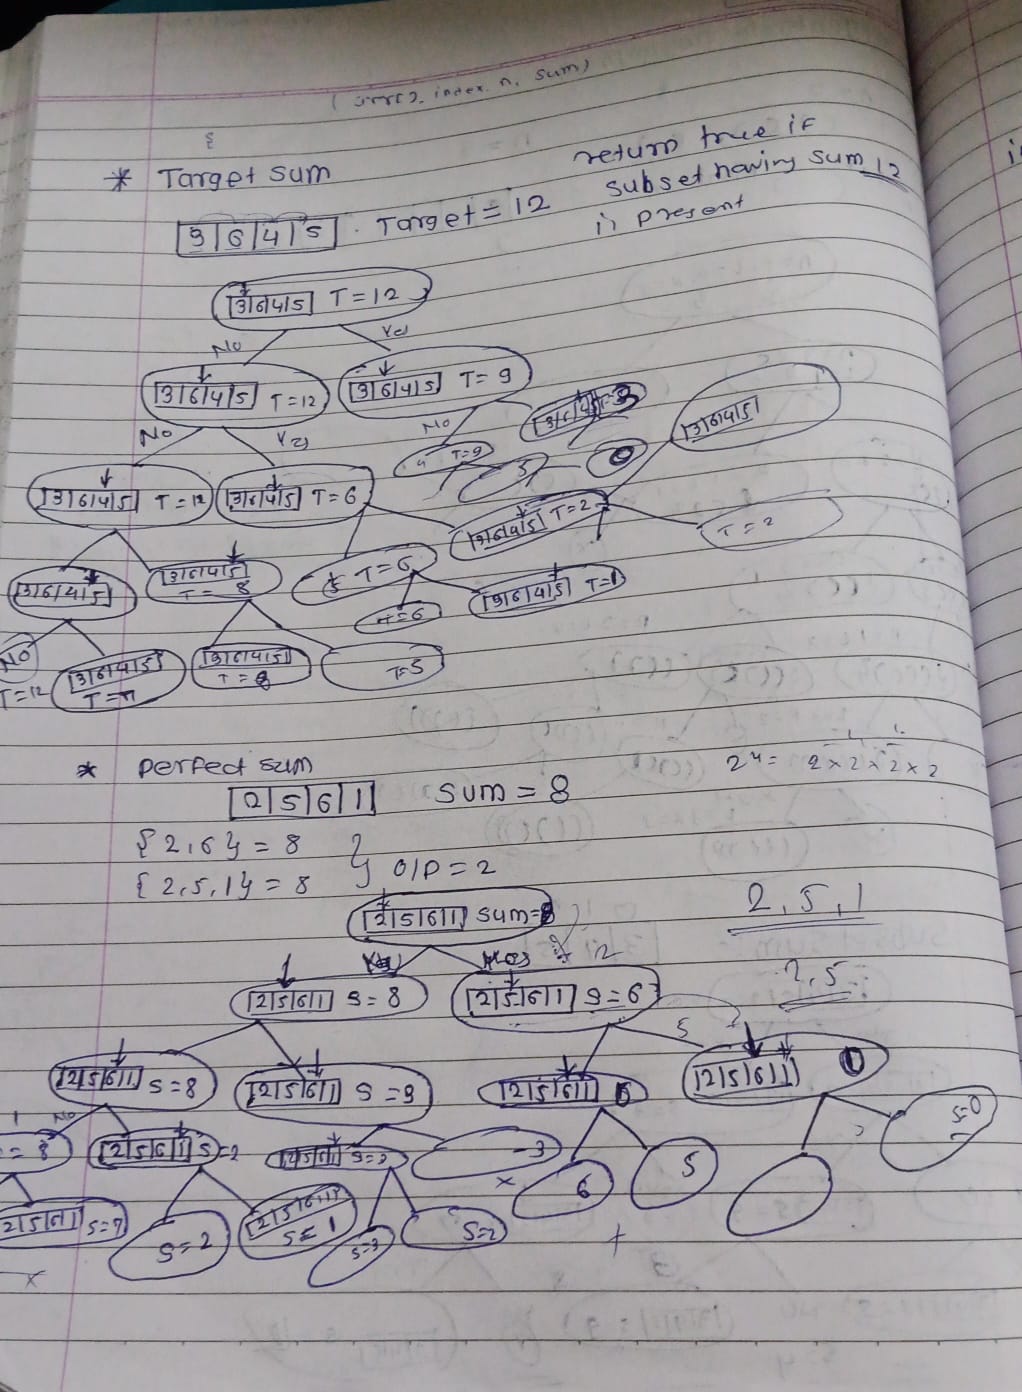 ( arr[], index, n, sum)
{
* Target sum
return true if
subset having sum 12
is present
3|6|4|5 . Target = 12
3|6|4|5 T = 12
No Yes
3|6|4|5 T = 12 3|6|4|5 T = 9
No Yes No
3|6|4|5
T=9
3|6|4|5 T = 12 3|6|4|5 T = 6
3|6|4|5 T = 2
T = 2
3|6|4|5 3|6|4|5 T = 8
T = 6
T = 6
3|6|4|5 T = 1
No
T = 12
3|6|4|5 T = 7
3|6|4|5 T = 8
T=3
* Perfect sum
2⁴ = 2 x 2 x 2 x 2
2|5|6|1 sum = 8
{ 2, 6 } = 8
{ 2, 5, 1 } = 8 } O/P = 2
2|5|6|1 sum=8
2, 5, 1
2|5|6|1 S = 8 2|5|6|1 S = 6
2, 5
5
2|5|6|1 S = 8 2|5|6|1 S = 3 2|5|6|1 2|5|6|1
No
= 8 2|5|6|1 S=2 2|5|6|1 -3 6 5 S=0
x
2|5|6|1 S=7 S = 2 2|5|6|1 S = 1 S=3 S=2
x